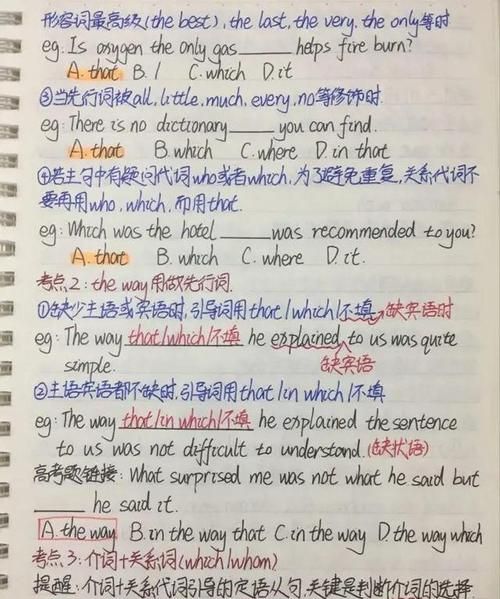 形容词最高级(the best), the last, the very, the only等时
eg: Is oxygen the only gas ____ helps fire burn?
A. that B. / C. which D. it
③当先行词被all, little, much, every, no等修饰时.
eg: There is no dictionary ____ you can find.
A. that B. which C. where D. in that
④若主句中有疑问代词who或者which,为了避免重复,关系代词不
要再用who, which, 而用that.
eg: Which was the hotel ____ was recommended to you?
A. that B. which C. where D. it.
考点2: the way用做先行词.
①缺少主语或宾语时,引导词用that/which/不填→缺宾语时
eg: The way that/which/不填 he explained to us was quite
simple. 缺宾语
②主语宾语都不缺时,引导词用that/in which/不填
eg: The way that/in which/不填 he explained the sentence
to us was not difficult to understand.(缺状语)
高考题链接: What surprised me was not what he said but
____ he said it.
A. the way B. in the way that C. in the way D. the way which
考点3: 介词+关系词(which/whom)
提醒: 介词+关系代词引导的定语从句,关键是判断介词的选择.